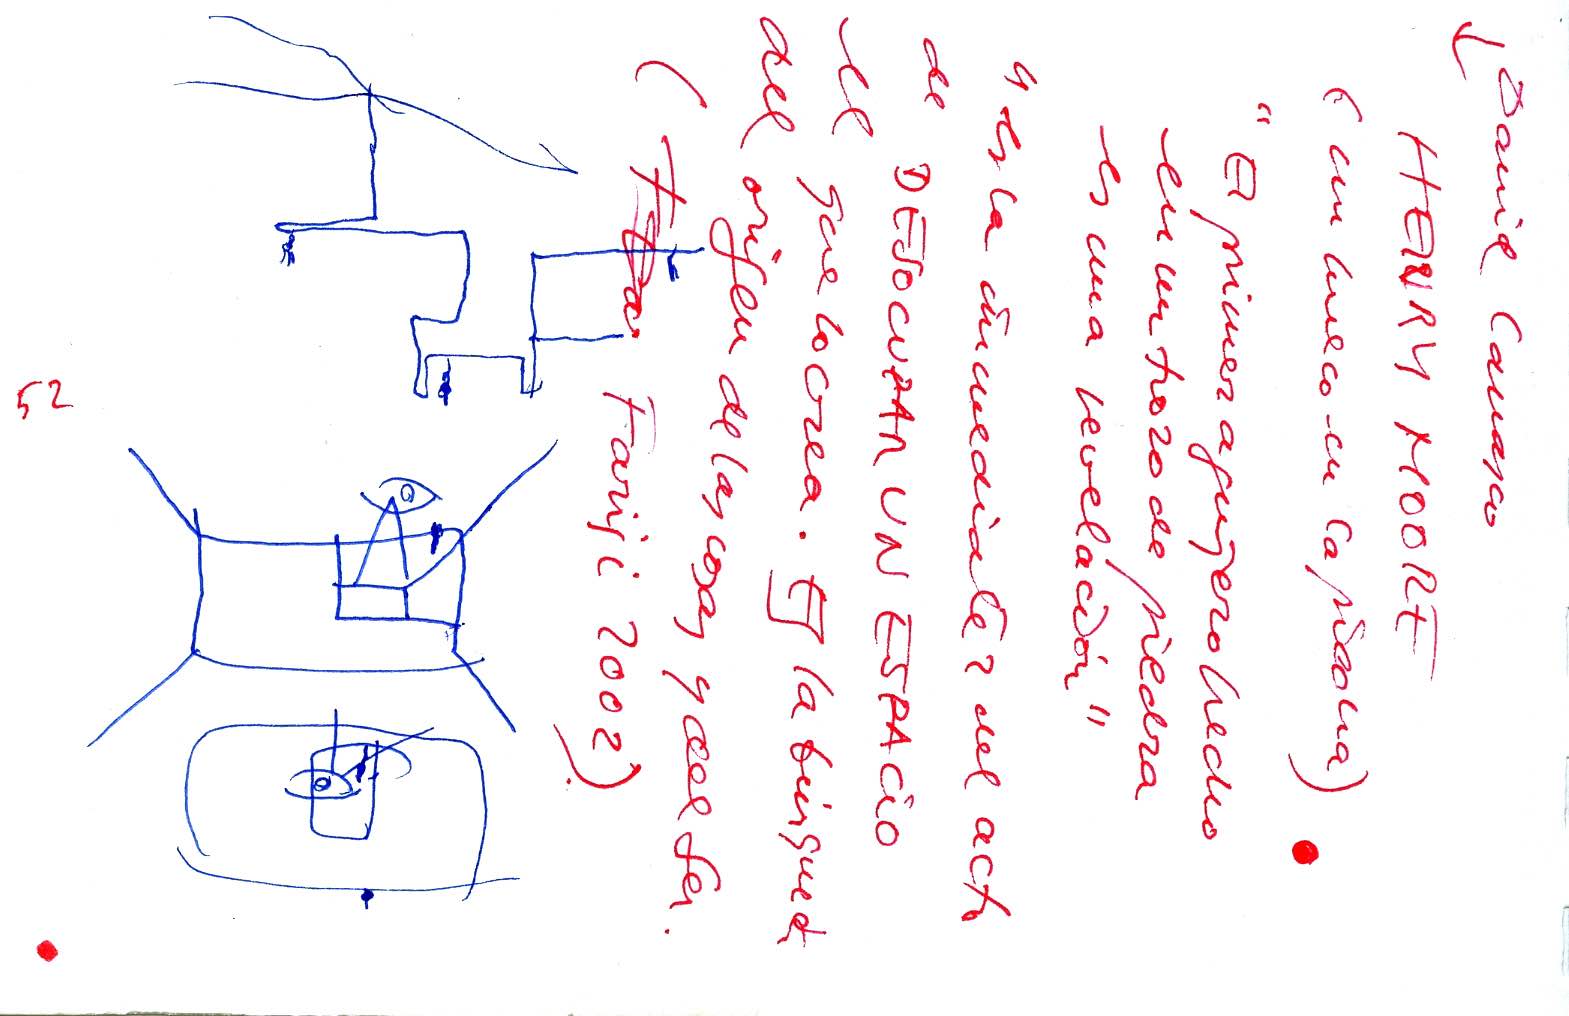 Daniel Canogar
HENRY MOORE
( un hueco en Ca
"El primer agujero hecho
en un trozo de piedra
es una revelación"
"es la inmediatez del acto
de DESOCUPAR UN ESPACIO
el que lo crea. Es la búsqueda
del origen de las cosas y del ser.
( 2002).
52